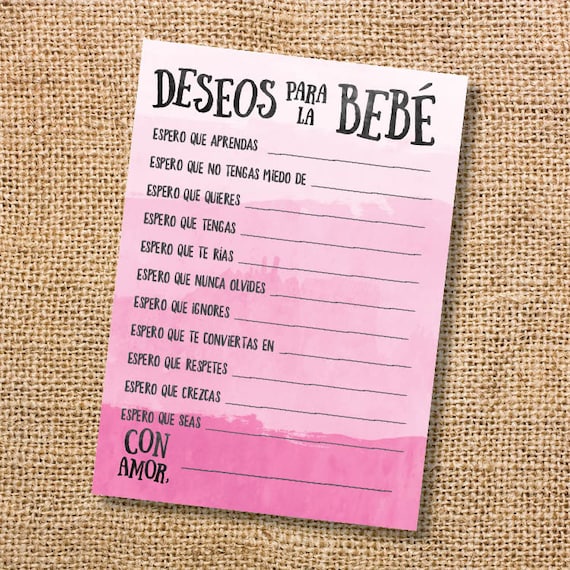 DESEOS PARA LA BEBÉ
ESPERO QUE APRENDAS
ESPERO QUE NO TENGAS MIEDO DE
ESPERO QUE QUIERES
ESPERO QUE TENGAS
ESPERO QUE TE RÍAS
ESPERO QUE NUNCA OLVIDES
ESPERO QUE IGNORES
ESPERO QUE TE CONVIERTAS EN
ESPERO QUE RESPETES
ESPERO QUE CREZCAS
ESPERO QUE SEAS
CON
AMOR,